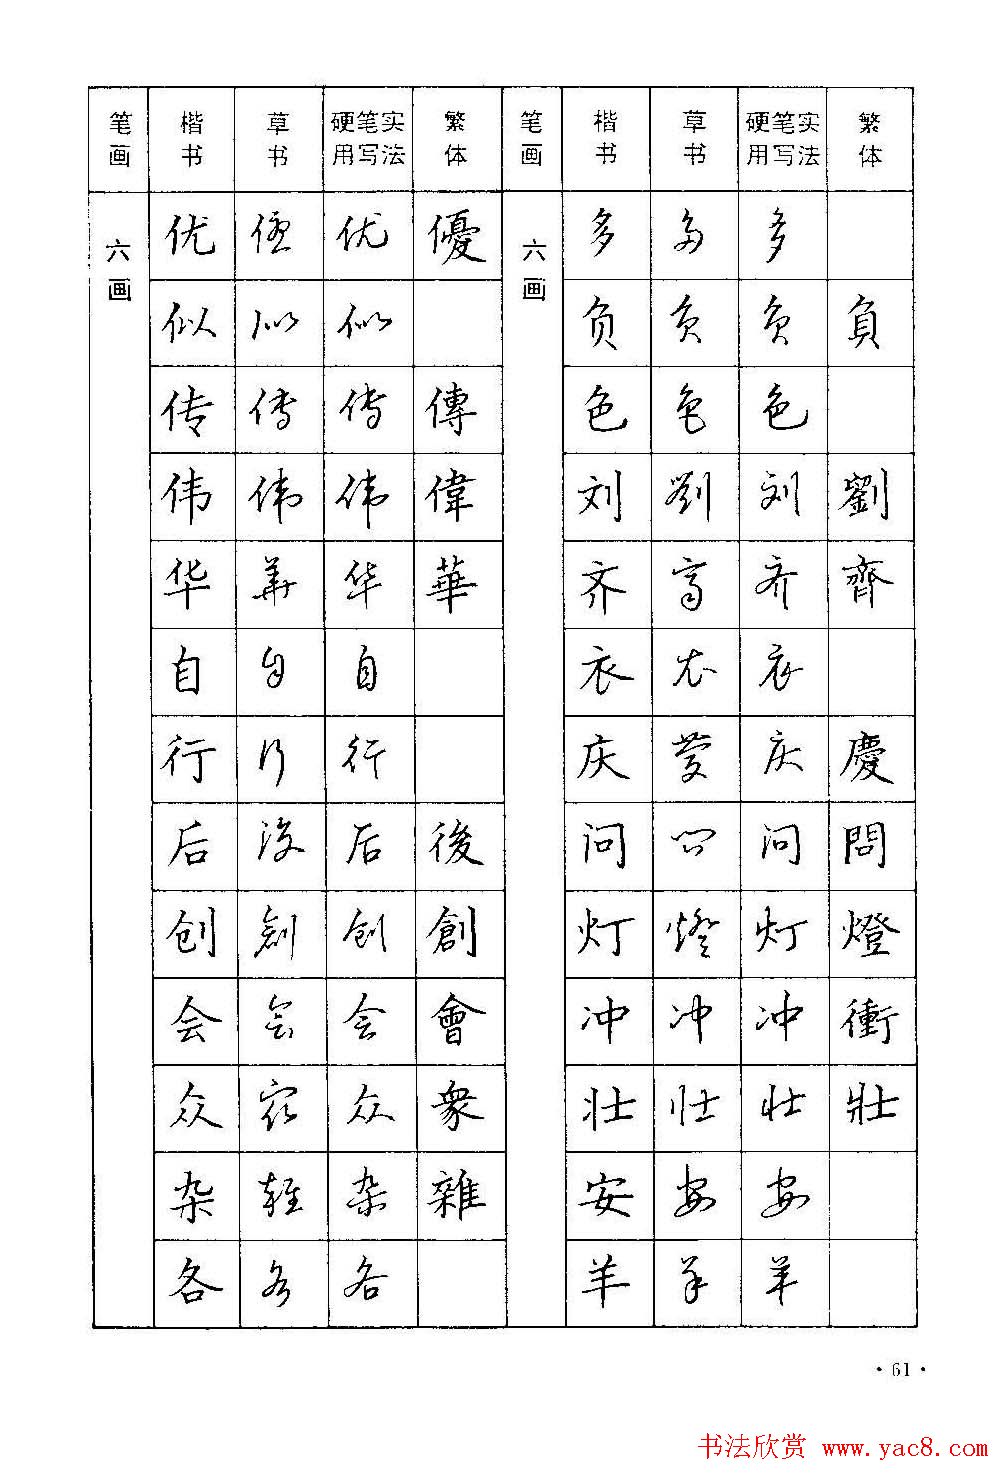 笔画 楷书 草书 硬笔实用写法 繁体 笔画 楷书 草书 硬笔实用写法 繁体
六画 优 優 优 優 六画 多 多 多
似 似 似 负 负 负 負
传 传 传 傳 色 色 色
伟 伟 伟 偉 刘 劉 刘 劉
华 華 华 華 齐 齊 齐 齊
自 自 自 衣 衣 衣
行 行 行 庆 慶 庆 慶
后 後 后 後 问 问 问 問
创 創 创 創 灯 燈 灯 燈
会 会 会 會 冲 冲 冲 衝
众 众 众 衆 壮 壮 壮 壯
杂 雜 杂 雜 安 安 安
各 各 各 羊 羊 羊
·61·
书法欣赏 www.yac8.com